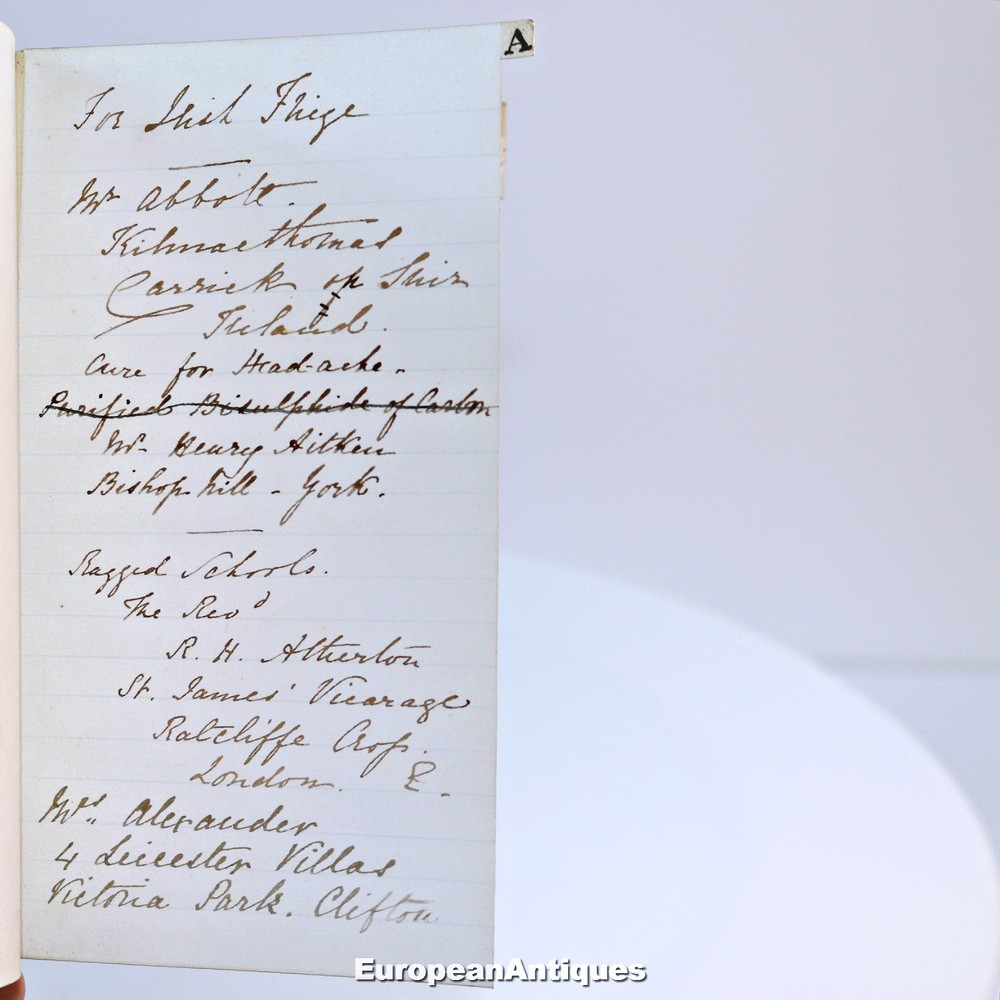 A
For Irish Frige
Mr Abbott.
Kilmacthomas
Carrick on Suir
Ireland.
Cure for Head-ache.
Purified Bisulphide of Carbon
Mr. Henry Aitken
Bishop hill - York.
Ragged Schools.
The Revd
R. H. Atherton
St. James' Vicarage
Ratcliffe Cross.
London. E.
Mrs. Alexander
4 Leicester Villas
Victoria Park. Clifton
EuropeanAntiques